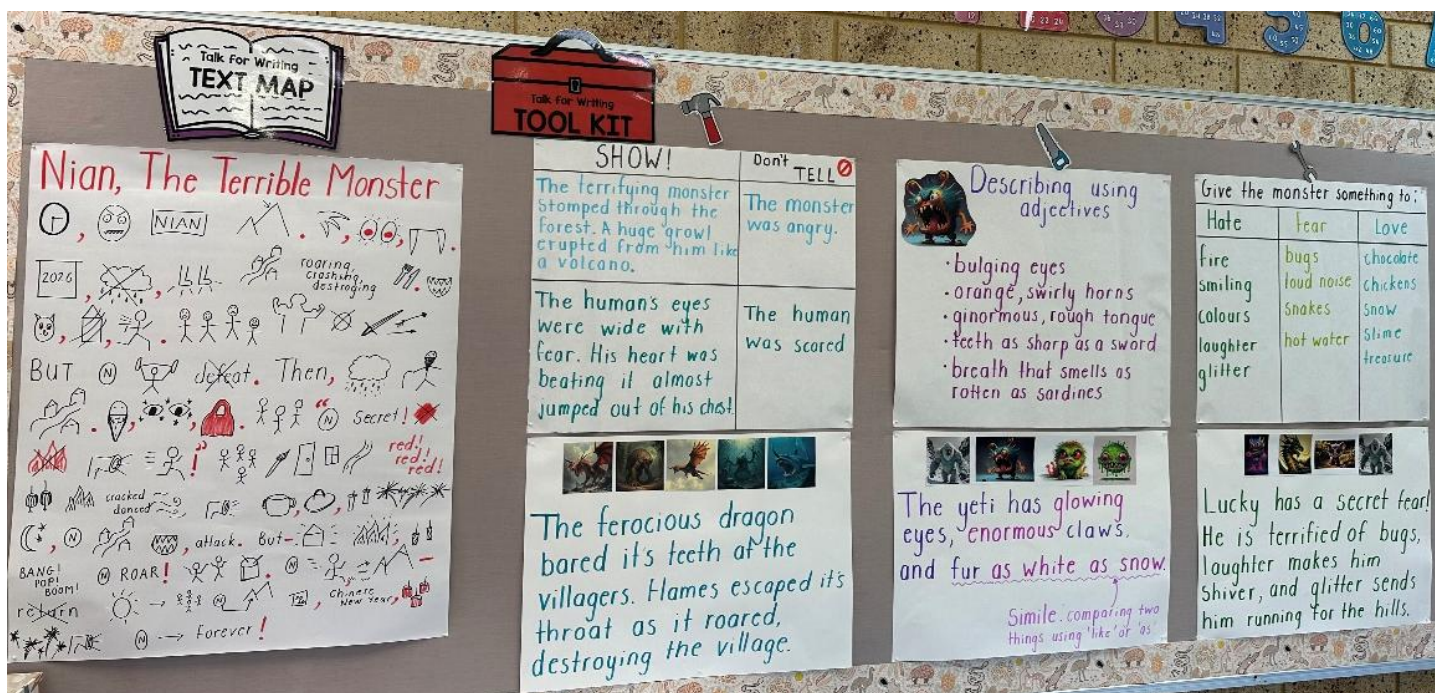 Talk for Writing
TEXT MAP
Talk for Writing
TOOL KIT
Nian, The Terrible Monster
NIAN
2026
roaring,
crashing,
destroying
BUT N defeat. Then,
"N Secret!
red!
red!
red!
cracked
danced
N attack. But-
BANG!
POP!
BOOM!
N ROAR! N
return
N
Chinese
New Year,
N Forever!
SHOW!
The terrifying monster
stomped through the
forest. A huge growl
erupted from him like
a volcano.
Don't
TELL
The monster
was angry.
The human's eyes
were wide with
fear. His heart was
beating it almost
jumped out of his chest
The human
was scared
The ferocious dragon
bared it's teeth at the
villagers. Flames escaped it's
throat as it roared,
destroying the village.
Describing using
adjectives
• bulging eyes
• orange, swirly horns
• ginormous, rough tongue
• teeth as sharp as a sword
• breath that smells as
rotten as sardines
The yeti has glowing
eyes, enormous claws,
and fur as white as snow.
Simile. comparing two
things using 'like' or 'as'
Give the monster something to:
Hate
fire
smiling
colours
laughter
glitter
Fear
bugs
loud noise
snakes
hot water
Love
chocolate
chickens
snow
slime
treasure
Lucky has a secret fear!
He is terrified of bugs,
laughter makes him
shiver, and glitter sends
him running for the hills.